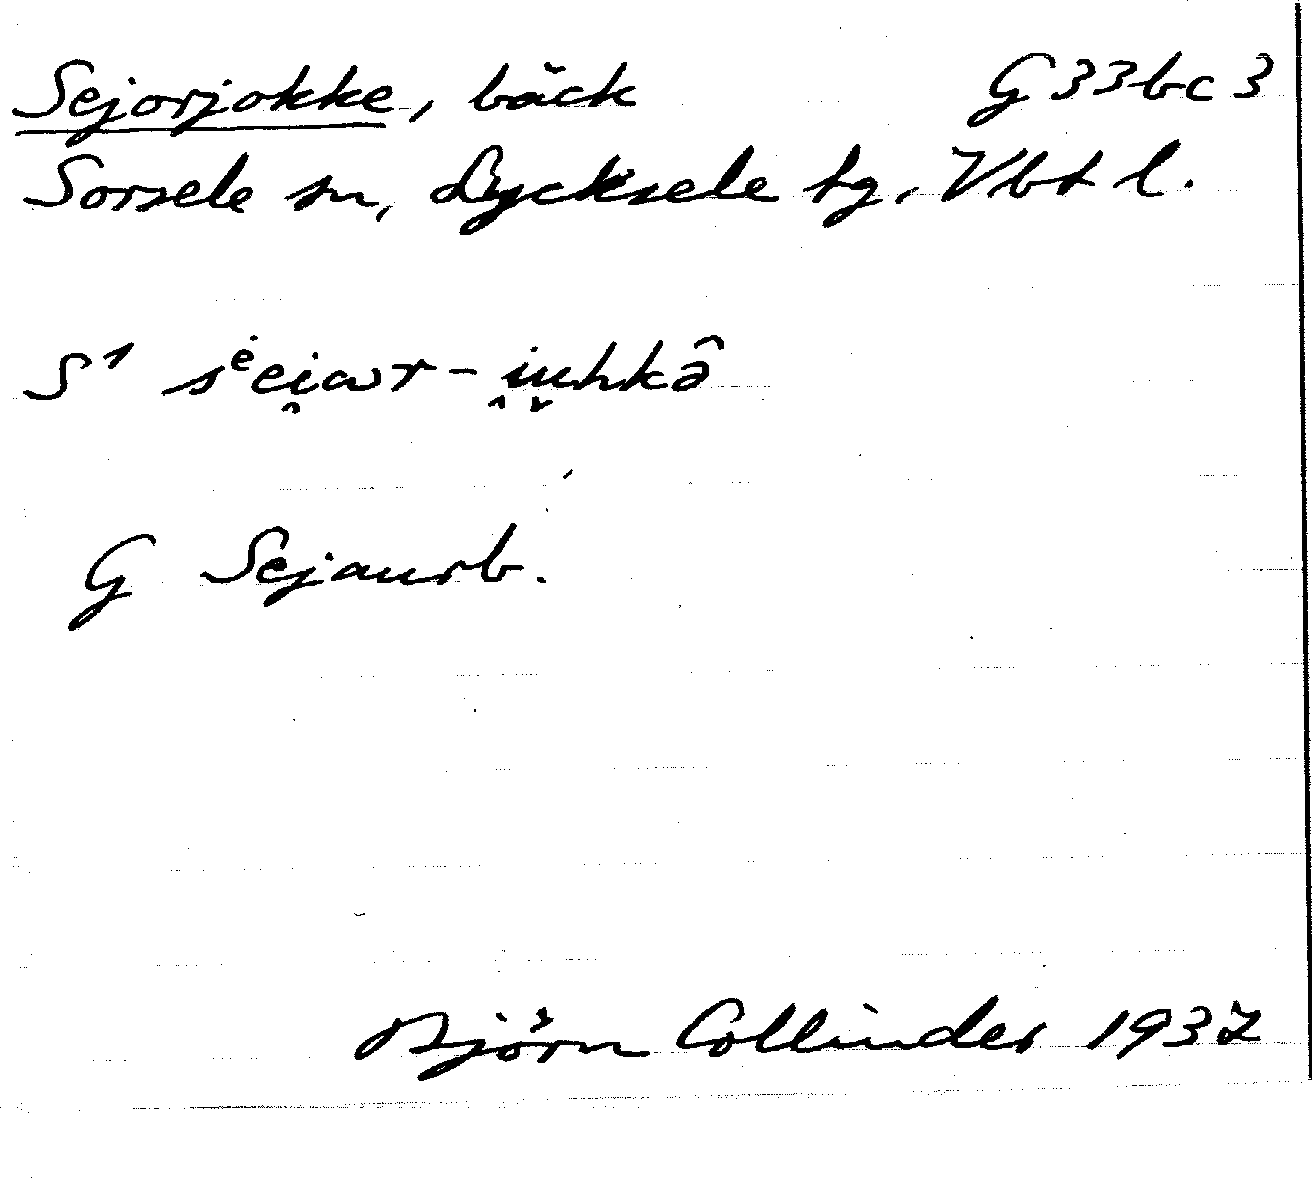 Sejorjokke, bäck G33bc3
Sorsele sn, Lycksele tg. Vbt l.
S¹ sᵉei̯ɷr-i̯u̬hkə̂
G Sejaurb.
Björn Collinder 1937